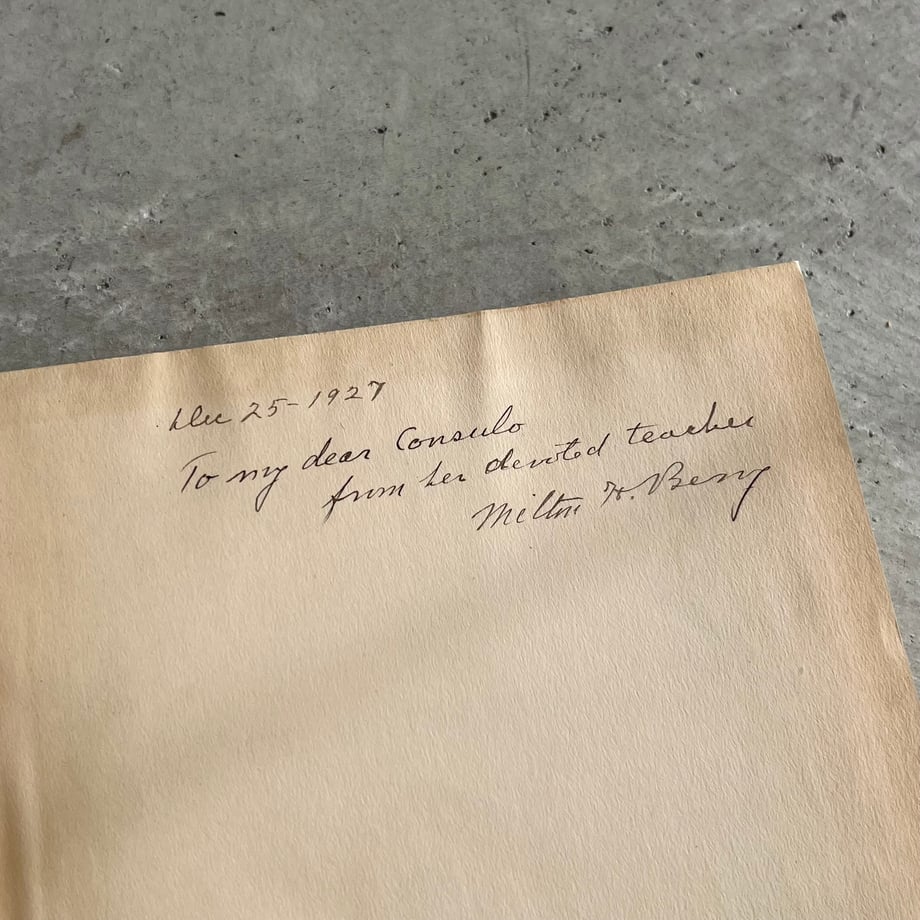 Dec 25-1927
To my dear Consulo
from her devoted teacher
Milton H. Berry